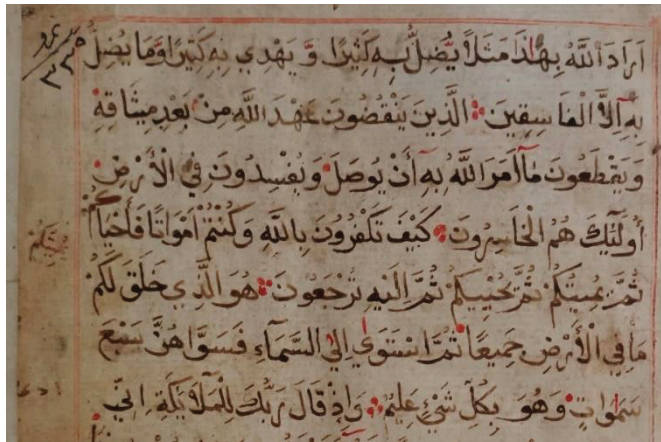 اَرَادَ اللَّهُ بِهَٰذَا مَثَلًا يُضِلُّ بِهِ كَثِيرًا وَّ يَهْدِي بِهِ كَثِيرًا وَّمَا يُضِلُّ
بِهِ اِلَّا الْفَاسِقِينَ الَّذِينَ يَنْقُضُونَ عَهْدَ اللَّهِ مِنْ بَعْدِ مِيثَاقِهِ
وَيَقْطَعُونَ مَآ اَمَرَ اللَّهُ بِهِ أَنْ يُوصَلَ وَيُفْسِدُونَ فِي الْأَرْضِ
أُولَٰئِكَ هُمُ الْخَاسِرُونَ كَيْفَ تَكْفُرُونَ بِاللَّهِ وَكُنْتُمْ اَمْوَاتًا فَأَحْيَاكُمْ
ثُمَّ يُمِيتُكُمْ ثُمَّ يُحْيِيكُمْ ثُمَّ اِلَيْهِ تُرْجَعُونَ هُوَ الَّذِي خَلَقَ لَكُمْ
مَا فِي الْأَرْضِ جَمِيعًا ثُمَّ اسْتَوَي اِلَي السَّمَآءِ فَسَوَّاهُنَّ سَبْعَ
سَمٰوَاتٍ وَهُوَ بِكُلِّ شَيْءٍ عَلِيمٌ وَاِذْ قَالَ رَبُّكَ لِلْمَلَآئِكَةِ اِنِّي